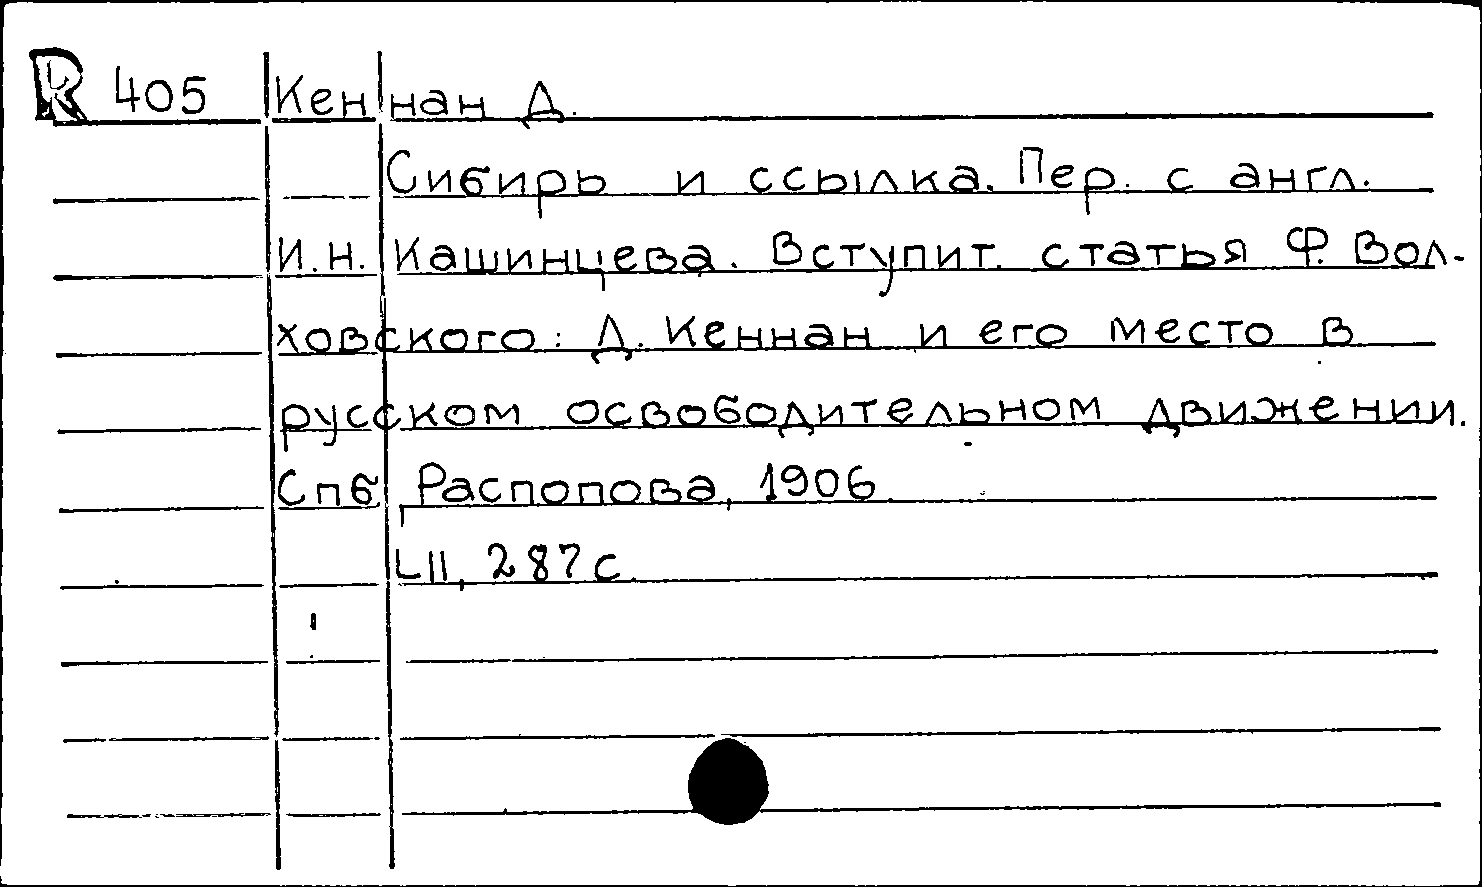 R 405 Кеннан Д.
Сибирь и ссылка. Пер. с англ.
И.Н. Кашинцева. Вступит. статья Ф. Вол-
ховского: Д. Кеннан и его место в
русском освободительном движении.
Спб, Распопова, 1906
LII, 287 с.